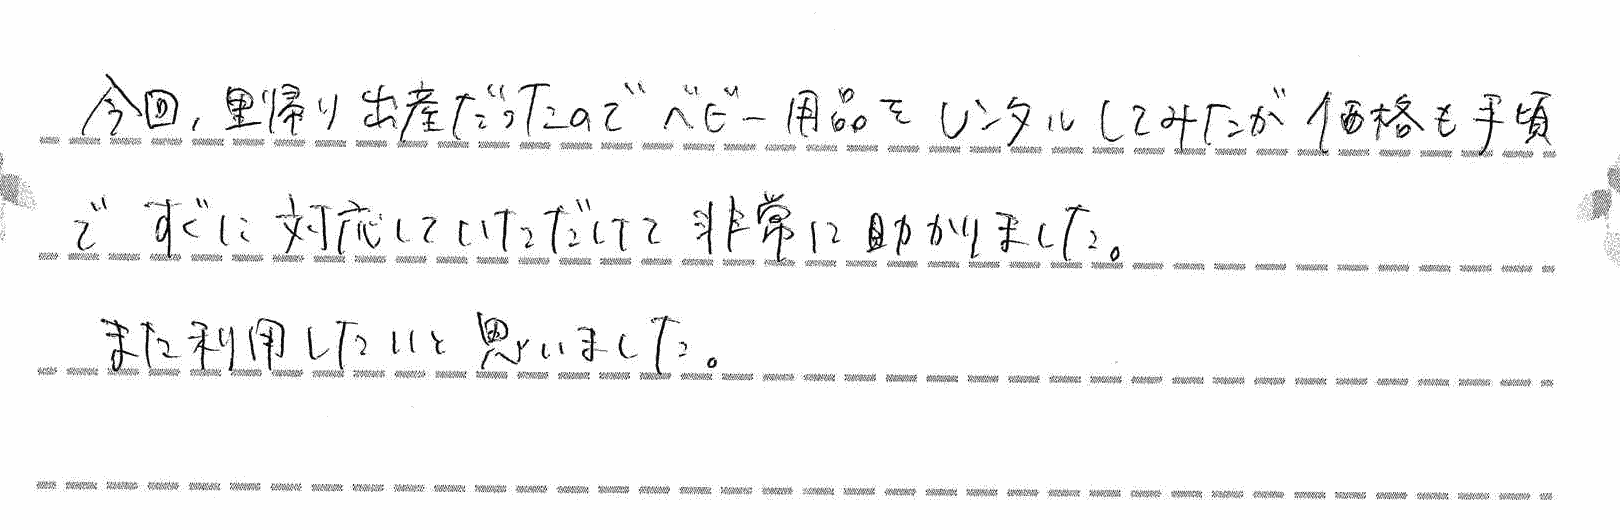 今回,里帰り出産だったのでベビー用品をレンタルしてみたが価格も手頃
ですぐに対応していただけて非常に助かりました。
また利用したいと思いました。